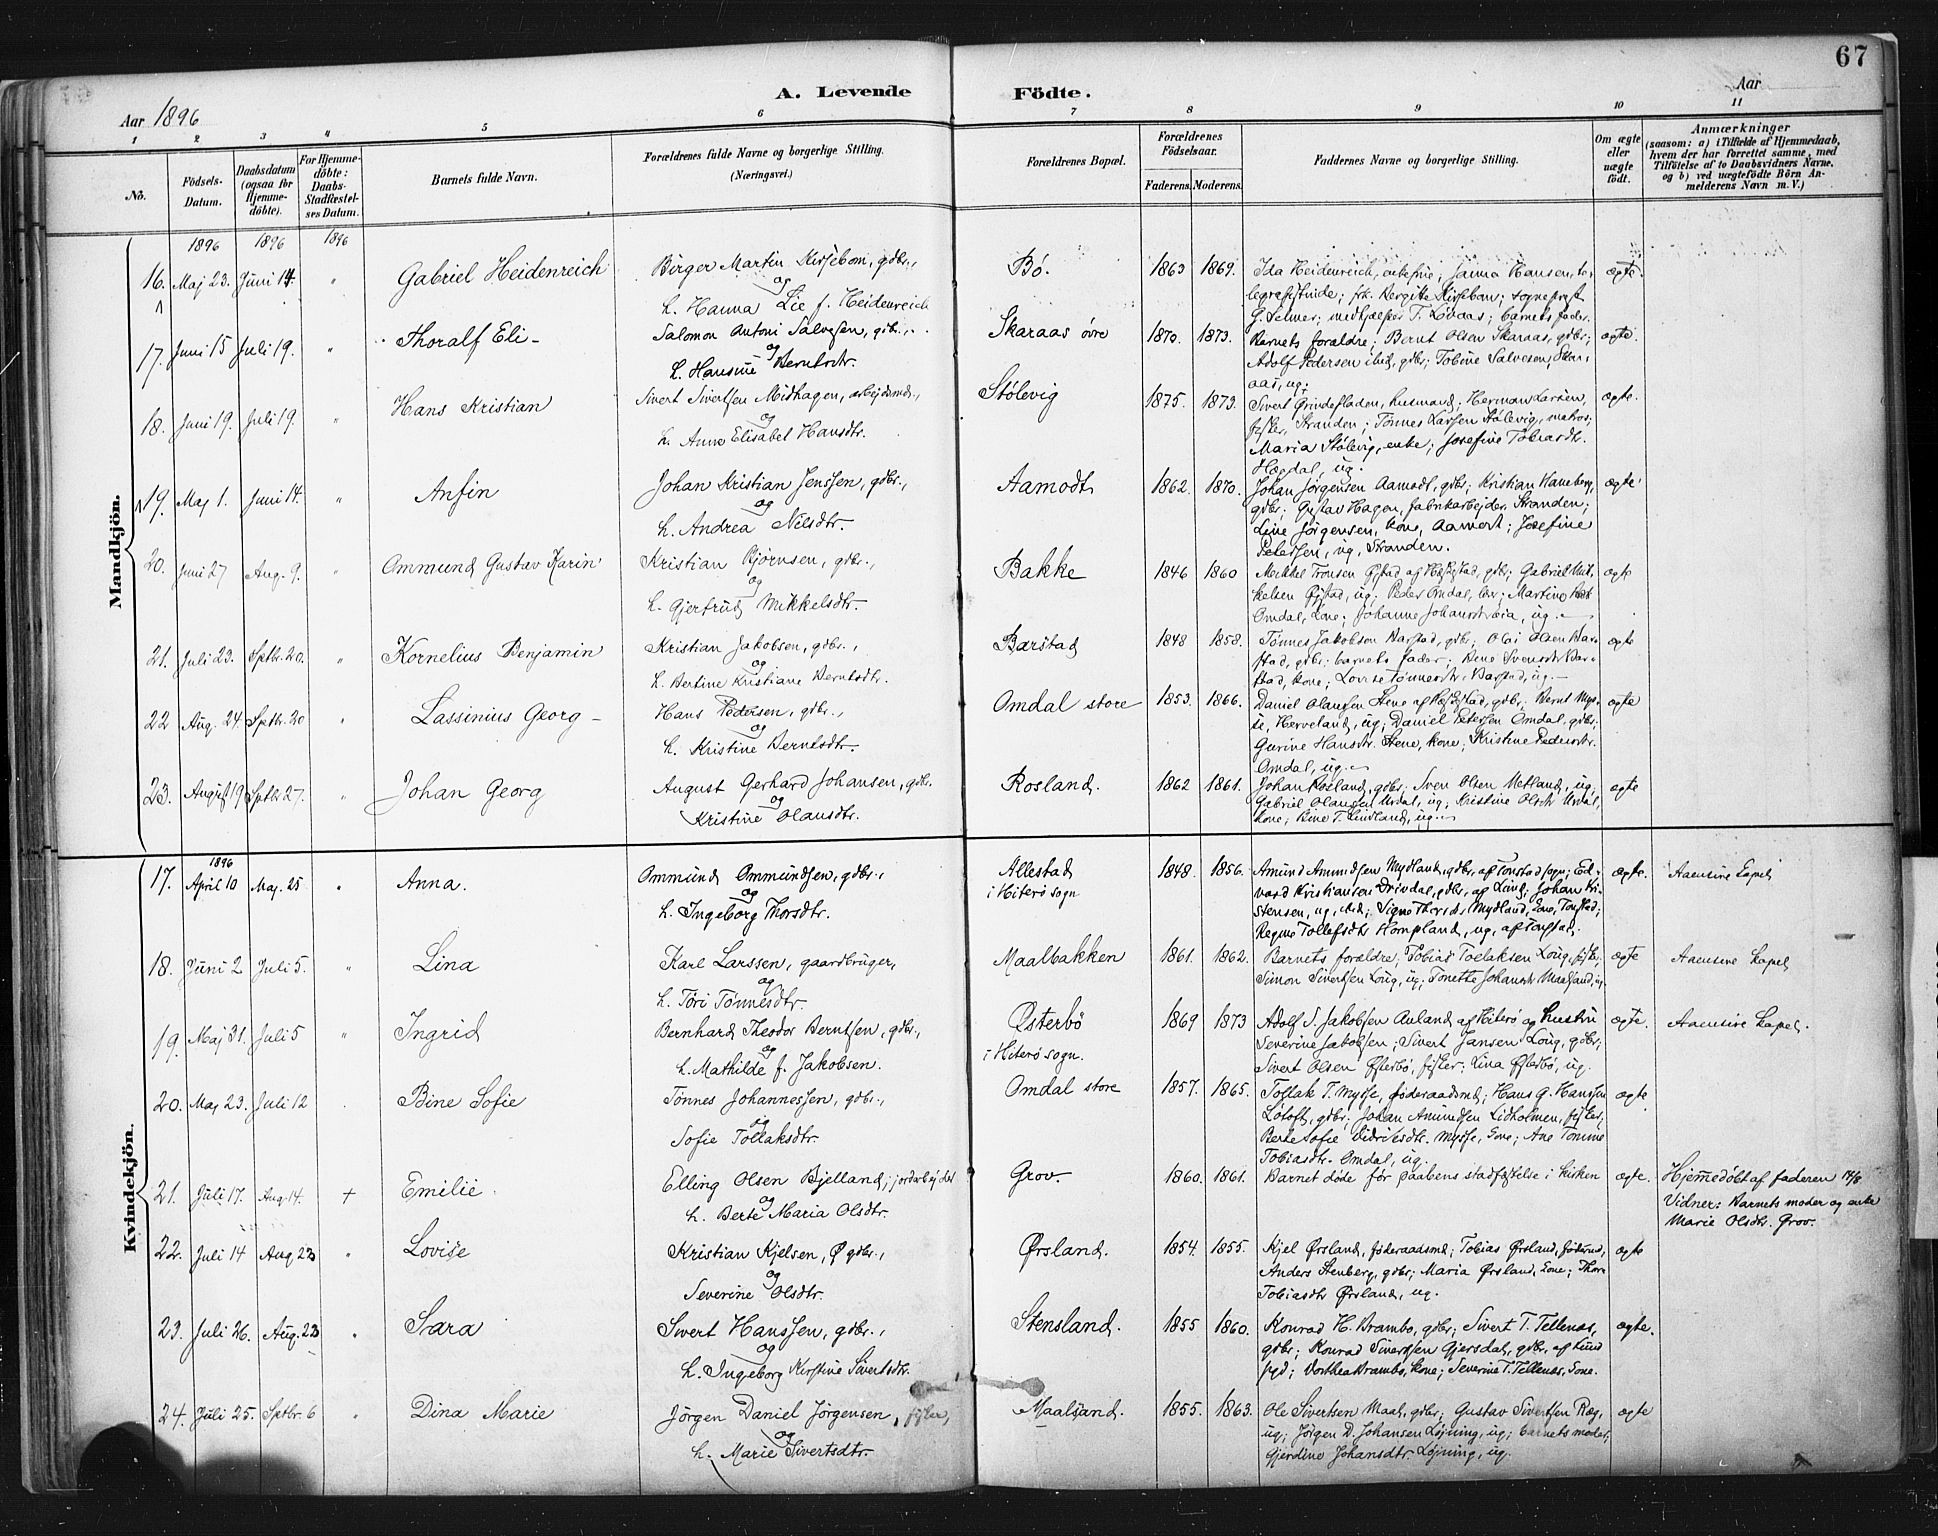 67
A. Levende Födte.
Aar 1896
Aar
1 2 3 4 5 6 7 8 9 10 11
No.
Födsels-Datum.
Daabsdatum (ogsaa for Hjemmedöbte).
For Hjemmedöbte: Daabs-Stadfæstelses Datum.
Barnets fulde Navn.
Forældrenes fulde Navne og borgerlige Stilling. (Næringsvei.)
Forældrenes Bopæl.
Forældrenes Födselsaar.
Faderens. Moderens.
Faddernes Navne og borgerlige Stilling.
Om ægte eller uægte födt.
Anmærkninger
(saasom: a) i Tilfælde af Hjemmedaab, hvem der har forrettet samme, med Tilföielse af to Daabsvidners Navne, og b) ved uægtefödte Börn Anmelderens Navn m.V.)
Mandkjön.
1896 1896 1896
16. Maj 23. Juni 14. " Gabriel Heidenreich Birger Martin Kirsebom, gdbr., og h. Hanna Lie f. Heidenreich Bö. 1863 1869. Ida Heidenreich, enkefrue; Janna Hansen, te-
legrafistinde; frk. Bergitte Kirsebom; sogneprest
G. Selmer; medhjelper T. Lövaas; barnets fader. ægte
17. Juni 15 Juli 19. " Thoralf Eli - Salomon Antoni Salvesen, gdbr., og h. Hansine Berntsdtr. Skaraas övre 1870. 1873. Barnets forældre; Bernt Olsen Skaraas, gdbr;
Adolf Pedersen ibid, gdbr; Tobine Salvesen, Skar-
aas, ug; ægte.
18. Juni 19. Juli 19. " Hans Kristian Sivert Sivertsen Midhagen, arbejdsmd., og h. Anne Elisabet Hansdtr. Stölevig 1875. 1873. Sivert Grindefladen, husmand; Herman Larsen,
fisker, Stranden; Tönnes Larsen Stölevig, matros;
Maria Stölevig, enke; Josefine Tobiasdtr.
Hægdal, ug. ægte.
19. Maj 1. Juni 14. " Anfin Johan Kristian Jenssen, gdbr., og h. Andrea Nilsdtr. Aamodt 1862. 1870. Johan Jörgensen Aamodt, gdbr; Kristian Haneberg,
gdbr; Gustav Hagen, fabrikarbejder Stranden;
Line Jörgensen, kone, Aamodt; Josefine
Petersen, ug, Stranden. ægte
20. Juni 27 Aug. 9. " Ommund Gustav Karin Kristian Bjørnsen, gdbr., og h. Gjertrud Mikkelsdtr. Bakke 1846 1860 Mikkel Tronsen Øjstad af Hæstad, gdbr; Gabriel Mik-
kelsen Øjstad, ug; Peder Omdal,
Omdal, kone; Johanne Johansdtr ug. ægte
21. Juli 23. Septbr. 20. " Kornelius Benjamin Kristian Jakobsen, gdbr., og h. Bertine Kristiane Berntsdtr. Barstad 1848 1858. Tönnes Jakobsen Barstad, gdbr; Olai Olsen Bar-
stad, gdbr; barnets fader; Bene Svensdtr Bar-
stad, kone; Lovise Tönnesdtr. Barstad, ug. - ægte
22 Aug. 24. Septbr. 20 " Lassinius Georg - Hans Pedersen, gdbr., og h. Kristine Berntsdtr. Omdal store 1853. 1866. Daniel Olausen Stene gdbr; Bernt Mys-
se, Herveland, ug; Daniel Petersen Omdal, gdbr;
Gurine Hansdtr. Stene, kone; Kristine Pedersdtr.
Omdal, ug. - ægte
23. August 19 Septbr 27. " Johan Georg August Gerhard Johansen, gdbr. og Kristine Olausdtr. Rosland. 1862 1861. Johan Rosland, gdbr; Sven Olsen Metland, ug;
Gabriel Olausen Urdal, ug; Kristine Olsdtr Urdal,
kone; Bine T. Lindland, ug. - ægte
Kvindekjön.
1896
17. April 10 Maj. 25 " Anna. Ommund Ommundsen, gdbr., og h. Ingeborg Thorsdtr. Allestad i Hiterö sogn 1848. 1856. Amund Amundsen Mydland, gdbr, af Tonstad sogn; Ed-
vard Kristiansen Drivdal, gdbr, af Lund; Johan Kri-
stensen, ug, ibid; Signe Mydland, kone, Tonstad;
Regine Tollefsdtr Hompland, ug, af Tonstad. ægte. Aaensire kapel
18. Juni 2 Juli 5. " Lina Karl Larssen, gaardbruger, og h. Töri Tönnesdtr. Maalbakken 1861. 1862. Barnets forældre, Tobias Toelaksen Loug, fisker;
Simon Sivertsen Loug, ug; Tonette Johansdtr Maaland, ug. ægte Aaensire kapel
19. Maj 31. Juli 5 " Ingrid Bernhard Theodor Berntsen, gdbr., og h. Mathilde f. Jakobsen. Østerbö i Hiterö sogn. 1869 1873 Adolf S. Jakobsen Auland af Hiterö og hustru
Severine Jakobsen; Sivert Jansen Loug, gdbr;
Sivert Olsen Østerbö, fisker; Lina Østerbö, ug. ægte. Aaensire kapel.
20. Maj 23. Juli 12 Bine Sofie Tönnes Johannessen, gdbr., og Sofie Tollaksdtr. Omdal store 1857. 1865. Tollak T. Mysse, föderaadsmd; Hans G. Hanssen
Lötoft, gdbr; Johan Amundsen Lidholmen, fisker;
Berte Sofie Didriksdtr. Mysse, kone; Ane Tomine
Tobiasdtr. Omdal, ug. ægte
21. Juli 17. Aug. 14. + Emilie. Elling Olsen Bjelland, jordarbejder og h. Berte Maria Olsdtr. Grov. 1860. 1861. Barnet döde för daabens stadfæstelse i kirken ægte. Hjemmedöbt af faderen 17/8
Vidner: Barnets moder og enke
Marie Olsdtr. Grov.
22. Juli 14 Aug 23 " Lovise Kristian Kjelsen, Ø gdbr., og Severine Olsdtr. Ørsland. 1854. 1855. Kjel Ørsland, föderaadsmd; Tobias Ørsland,
Anders Stenberg, gdbr; Maria Ørsland, kone; Thora
Tobiasdtr Ørsland, ug. ægte
23. Juli 26. Aug. 23 " Sara Sivert Hanssen, gdbr., og h. Ingeborg Kirstine Sivertsdtr. Stensland. 1855 1860. Konrad H. Brambo, gdbr; Sivert T. Tellenæs,
gdbr; Konrad Sivertsen Gjersdal, gdbr, af Lund
pgd; Dorthea Brambo, kone; Severine T. Tellenæs, kone. ægte.
24. Juli 25. Septbr. 6 " Dina Marie Jörgen Daniel Jörgensen, fisker, og h. Marie Sivertsdtr. Maalsand. 1855. 1863. Ole Sivertsen Maal, gdbr; Gustav Sivertsen Ræg,
ug; Jörgen D. Johansen Löjning, ug; barnets moder;
Gjerdine Johansdtr. Löjning, ug. ægte